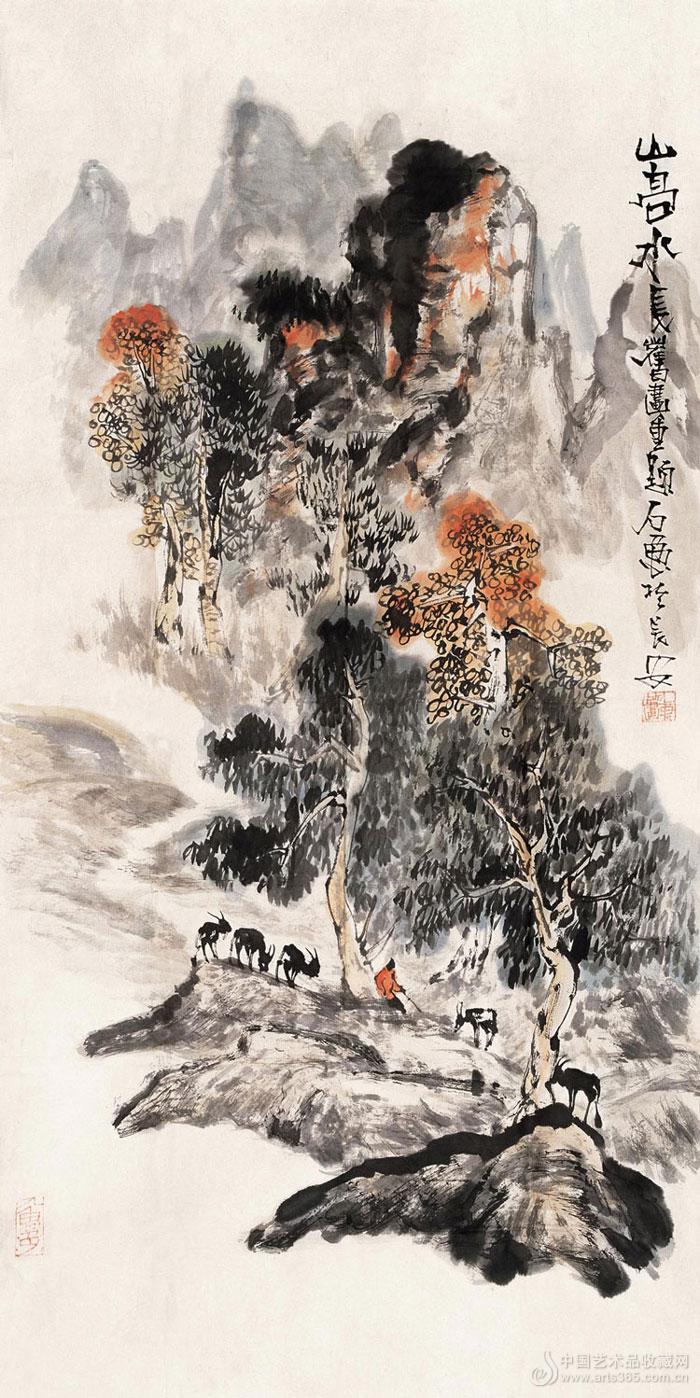 山高水長舊畫重題石魯於長安
中国艺术品收藏网
www.arts365.com.cn